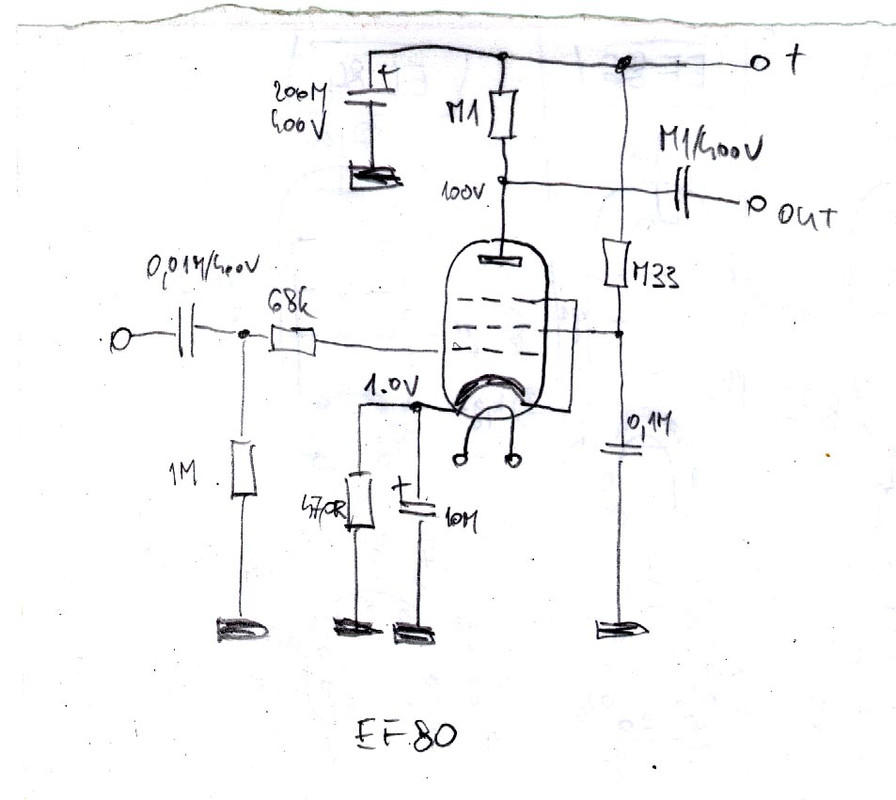 +
+
200M
400V
M1
M1/400V
100V
OUT
0,01M/400V
68k
M33
1.0V
0,1M
1M
470R
+
10M
EF80